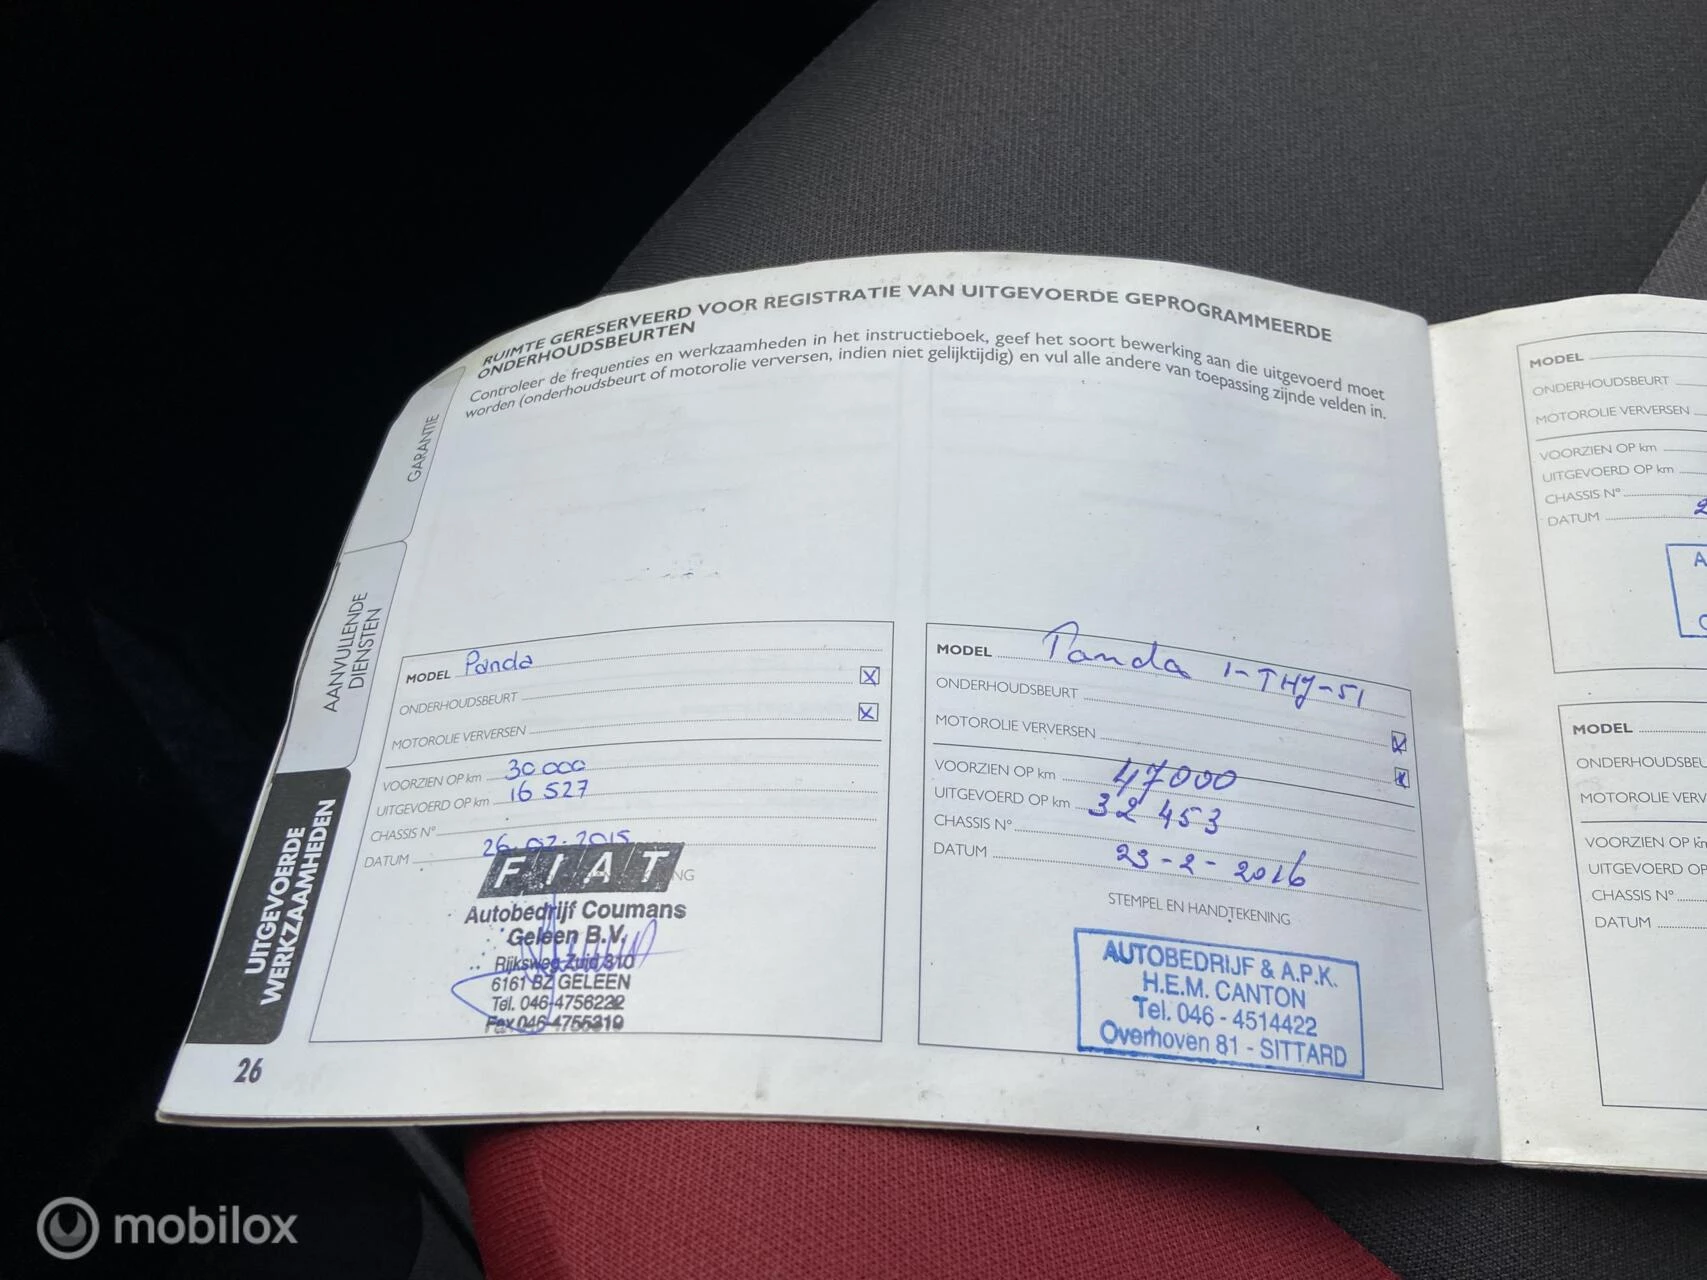 RUIMTE GERESERVEERD VOOR REGISTRATIE VAN UITGEVOERDE GEPROGRAMMEERDE
ONDERHOUDSBEURTEN
Controleer de frequenties en werkzaamheden in het instructieboek, geef het soort bewerking aan die uitgevoerd moet
worden (onderhoudsbeurt of motorolie verversen, indien niet gelijktijdig) en vul alle andere van toepassing zijnde velden in.
GARANTIE
AANVULLENDE
DIENSTEN
UITGEVOERDE
WERKZAAMHEDEN
26
MODEL Panda
ONDERHOUDSBEURT X
MOTOROLIE VERVERSEN X
VOORZIEN OP km 30 000
UITGEVOERD OP km 16 527
CHASSIS N°
DATUM 26-02-2015
FIAT
Autobedrijf Coumans
Geleen B.V.
Rijksweg Zuid 310
6161 BZ GELEEN
Tel. 046-4756222
Fax 046-4755319
MODEL Panda 1-THJ-51
ONDERHOUDSBEURT X
MOTOROLIE VERVERSEN X
VOORZIEN OP km 47000
UITGEVOERD OP km 32 453
CHASSIS N°
DATUM 23-2-2016
STEMPEL EN HANDTEKENING
AUTOBEDRIJF & A.P.K.
H.E.M. CANTON
Tel. 046 - 4514422
Overhoven 81 - SITTARD
MODEL
ONDERHOUDSBEURT
MOTOROLIE VERVERSEN
VOORZIEN OP km
UITGEVOERD OP km
CHASSIS N°
DATUM 2
A
MODEL
ONDERHOUDSBEU
MOTOROLIE VERV
VOORZIEN OP km
UITGEVOERD OP
CHASSIS N°
DATUM
mobilox